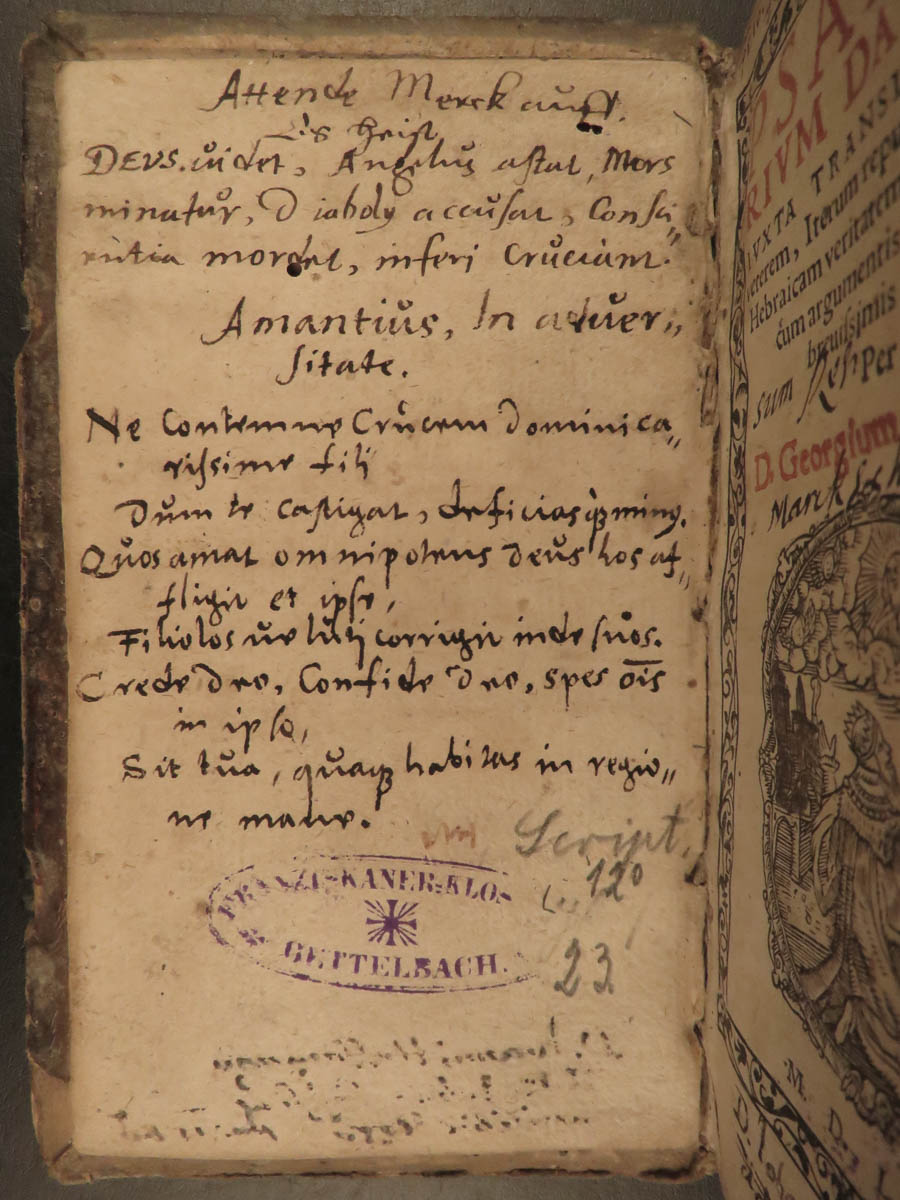 Attende Merck auff.
Es heist
DEVS. videt, Angelus astat, Mors
minatur, Diabolus accusat, Consci„
entia mordet, inferi Cruciant.
Amantius, In aduer„
sitate.
Ne Contemne Crucem Domini ca„
rissime fili
Dum te castigat, deficiasque minus.
Quos amat omnipotens Deus hos af„
fligit et ipse,
Filiolos ue luti corrigit inde suos.
Crede Deo, Confide Deo, spes o͞is
in ipso,
Sit tua, quaque habitas in regio„
ne mane.
Script.
12°
23.
FRANZISKANER-KLOS
DETTELBACH.
PSA
RIVM DA
IVXTA TRANSL
veterem, Iterum repu
Hebraicam veritatem
cum argumentis
breuissimis
Sum
Per
D. Georgium
M. D.